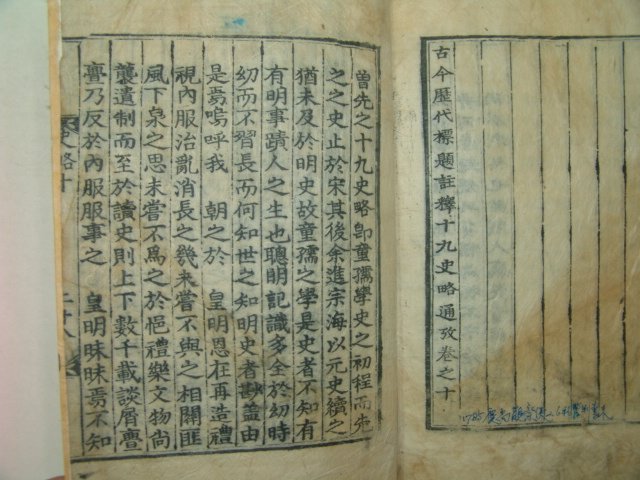 古今歷代標題註釋十九史略通攷卷之十
曾先之十九史略卽童孺學史之初程而先
之之史止於宋其後余進宗海以元史續之
猶未及於明史故童孺之學是史者不知有
有明事蹟人之生也聰明記識多全於幼時
幼而不習長而何知世之知明史者尠盖由
是焉嗚呼我 朝之於 皇明恩在再造禮
視內服治亂消長之幾未嘗不與之相關匪
風下泉之思未嘗不爲之於悒禮樂文物尚
襲遺制而至於讀史則上下數千載談屑亹
亹乃反於內服服事之 皇明昧昧焉不知
史略十